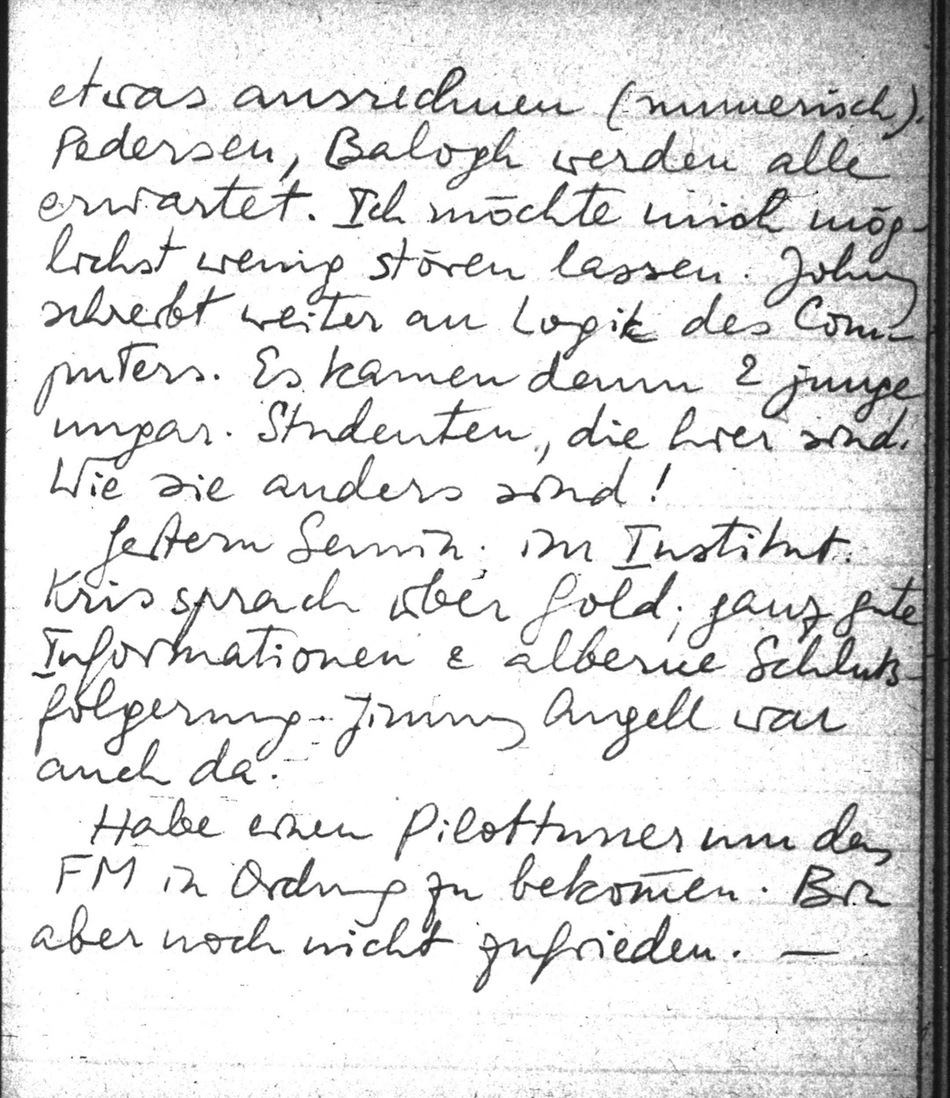 etwas ausrechnen (numerisch).
Pedersen, Balogh werden alle
erwartet. Ich möchte mich mög-
lichst wenig stören lassen. Johny
schreibt weiter an Logik des Com-
puters. Es kamen dann 2 junge
ungar. Studenten, die hier sind.
Wie sie anders sind!
Gestern Semin. im Institut.
Kris sprach über Gold, ganz gute
Informationen & alberne Schluß-
folgerung. Jimmy Angell war
auch da.
Habe einen Pilottuner um den
FM in Ordnung zu bekom̄en. Bin
aber noch nicht zufrieden. —